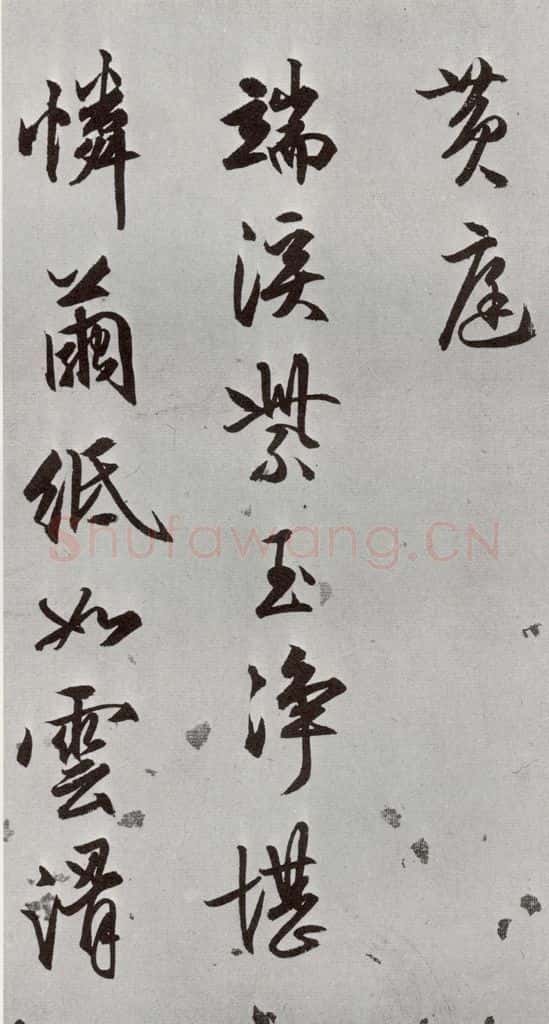 黄庭
端溪紫玉净堪
憐繭紙如雲滑
Shufawang.CN